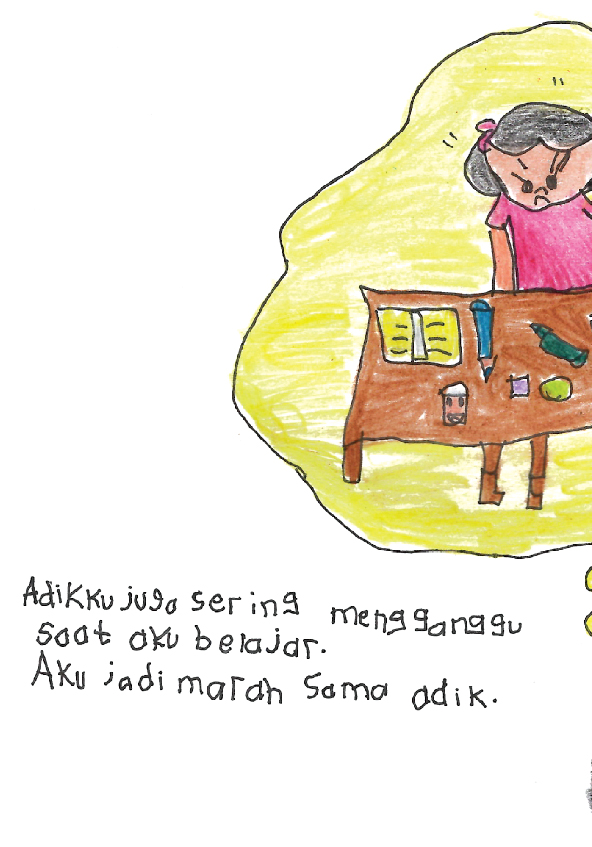 Adikku juga sering mengganggu
saat aku belajar.
Aku jadi marah sama adik.